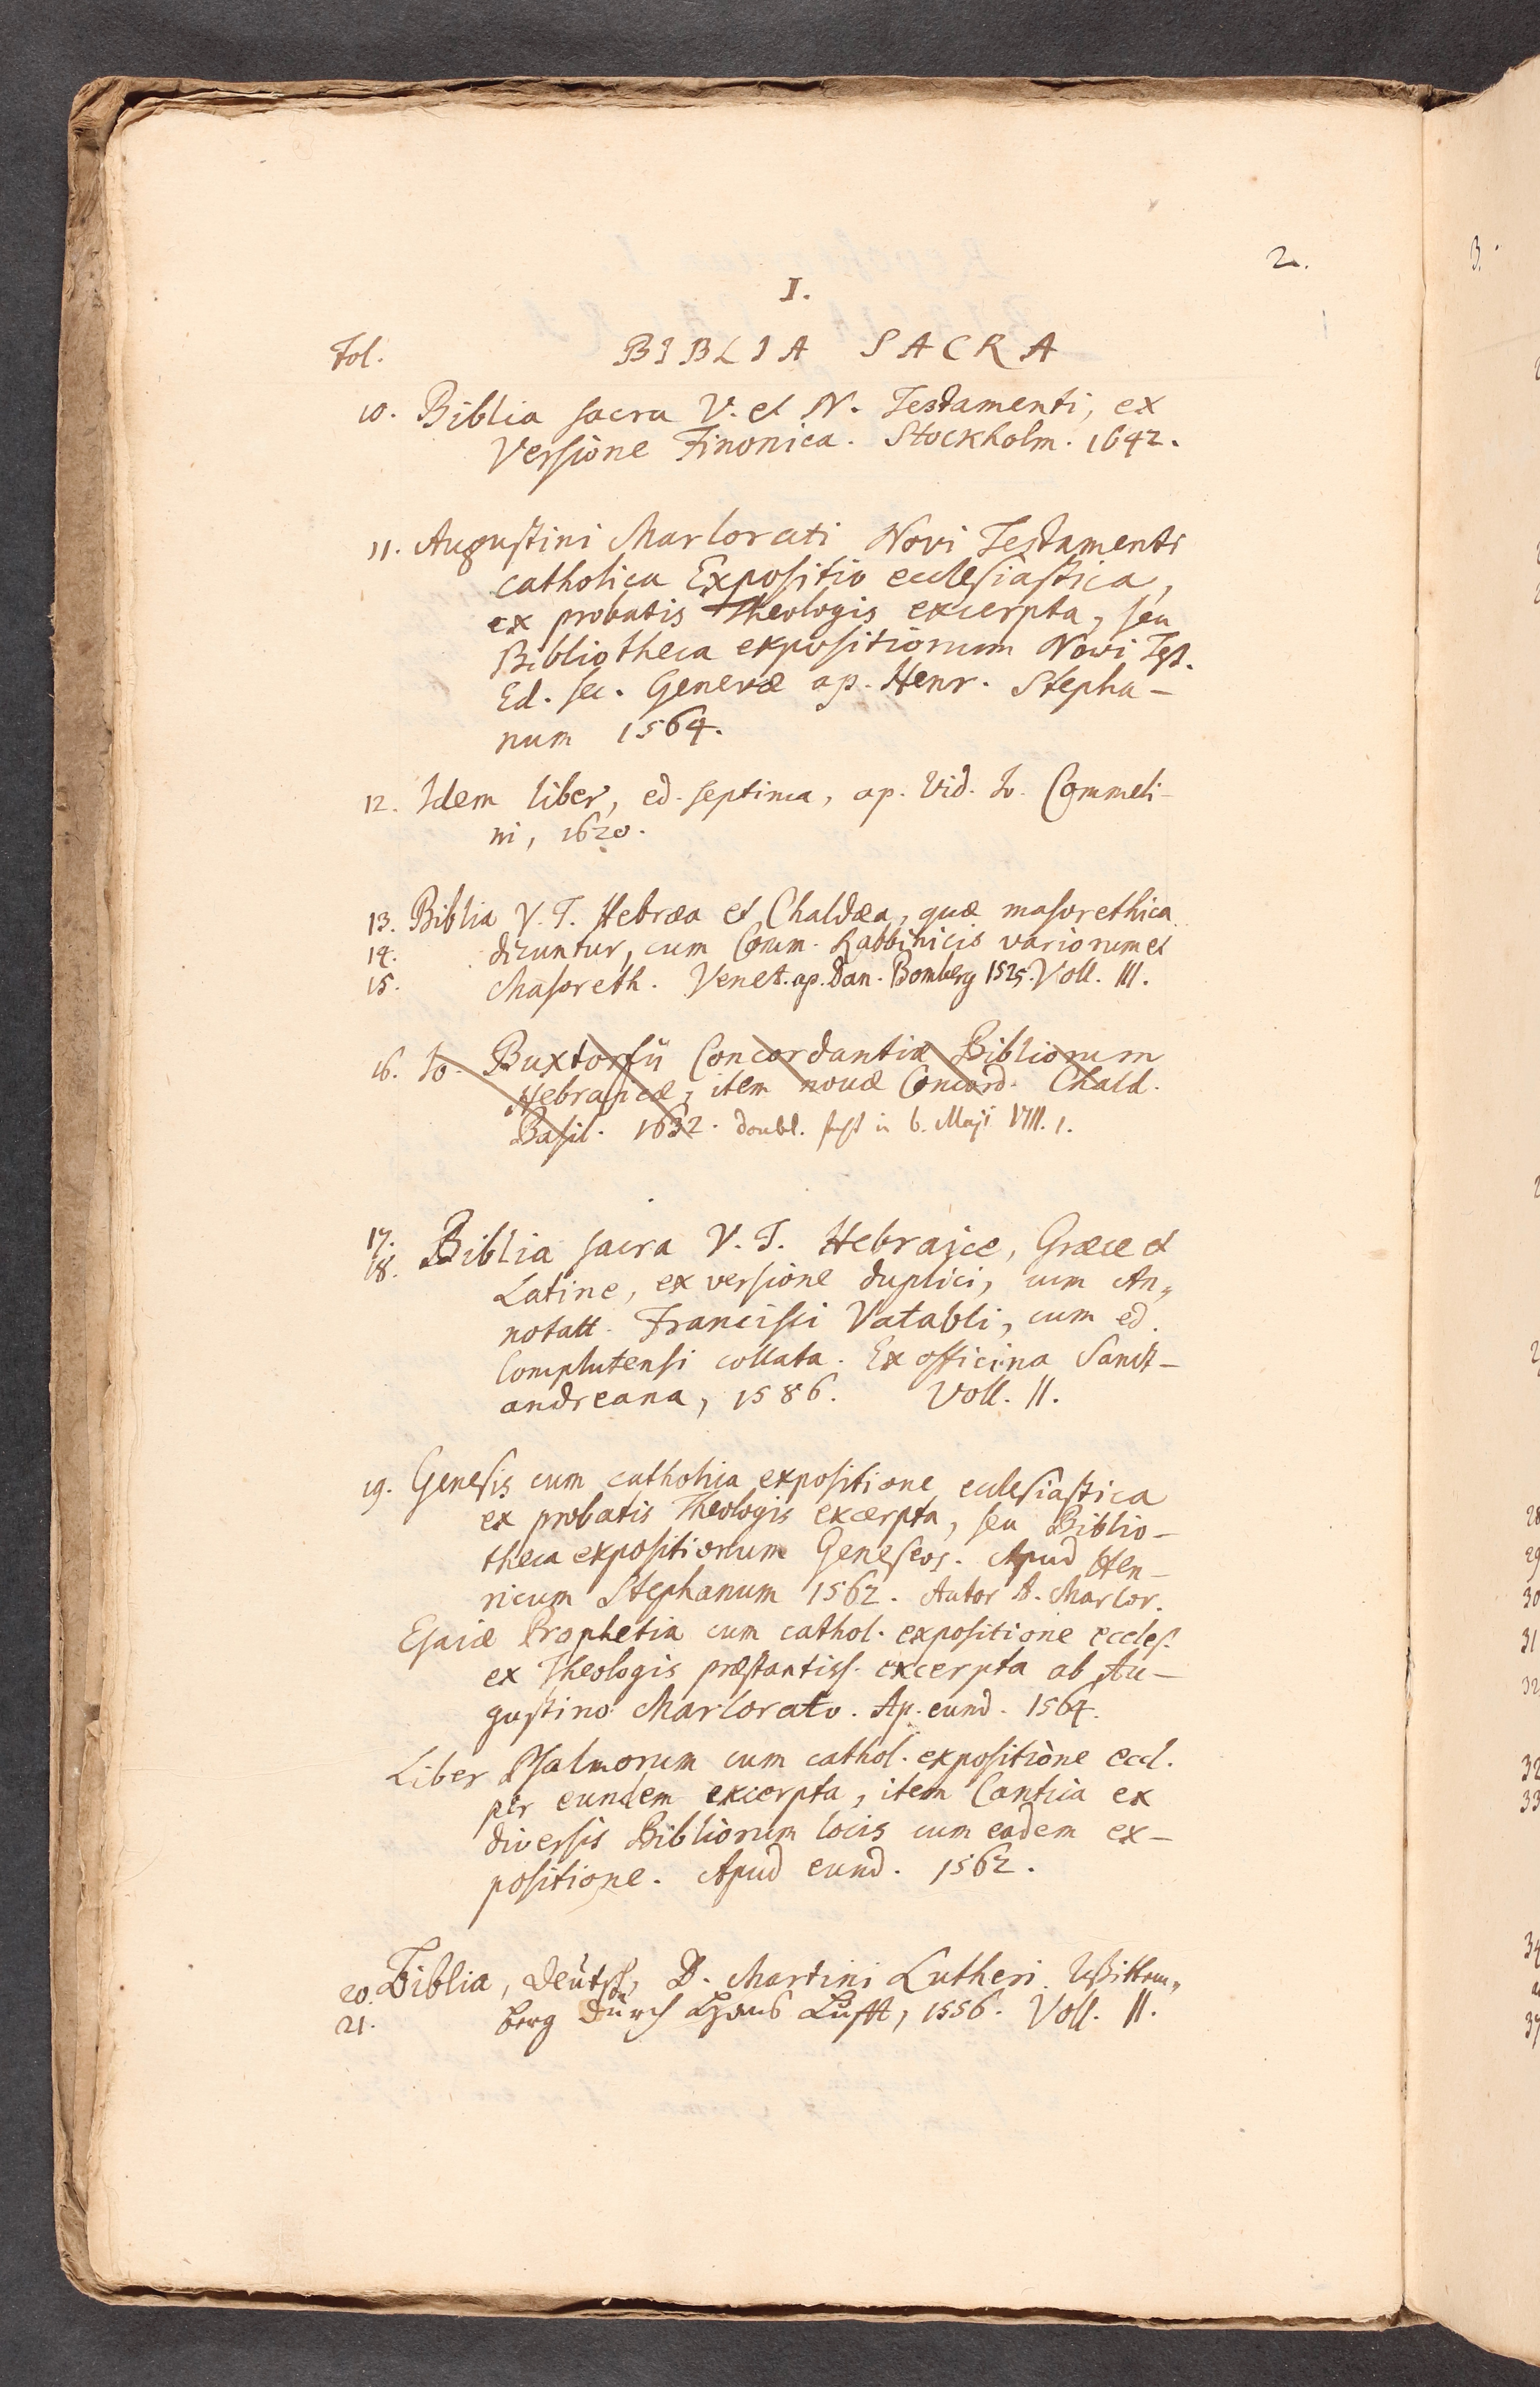 2.
I.
Fol. BIBLIA SACRA
10. Biblia sacra V. et N. Testamenti, ex
Versione Finonica. Stockholm. 1642.
11. Augustini Marlorati Novi Testamenti
catholica Expositio ecclesiastica,
ex probatis Theologis excerpta, seu
Bibliotheca expositionum Novi Test.
Ed. sec. Genevæ ap. Henr. Stepha-
num 1564.
12. Idem liber, ed. septima, ap. Vid. Io. Commeli-
ni, 1620.
13. Biblia V. T. Hebræa et Chaldæa, quæ masorethica
14. dicuntur, cum Comm. Rabbinicis variorum et
15. Masoreth. Venet. ap. Dan. Bomberg 1525. Voll. III.
16. Io. Buxtorfii Concordantiæ Bibliorum
Hebraicæ, item novæ Concord. Chald.
Basil. 1632. doubl. in 6. Maji VIII. 1.
17. Biblia sacra V. T. Hebraice, Græce et
18. Latine, ex versione duplici, cum An„
notatt. Francisci Vatabli, cum ed.
Complutensi collata. Ex officina Sanct-
andreana, 1586. Voll. II.
19. Genesis cum catholica expositione ecclesiastica
ex probatis Theologis excerpta, seu Biblio-
theca expositionum Geneseos. Apud Hen-
ricum Stephanum 1562. Autor A. Marlor.
Esaiæ Prophetia cum cathol. expositione eccles.
ex Theologis præstantiss. excerpta ab Au-
gustino Marlorato. Ap. eund. 1564.
Liber Psalmorum cum cathol. expositione eccl.
per eundem excerpta, item Cantica ex
diversis Bibliorum locis cum eadem ex-
positione. Apud eund. 1562.
20. Biblia, deutsch, D. Martini Lutheri. Wittem„
21. berg durch Hans Lufft, 1556. Voll. II.